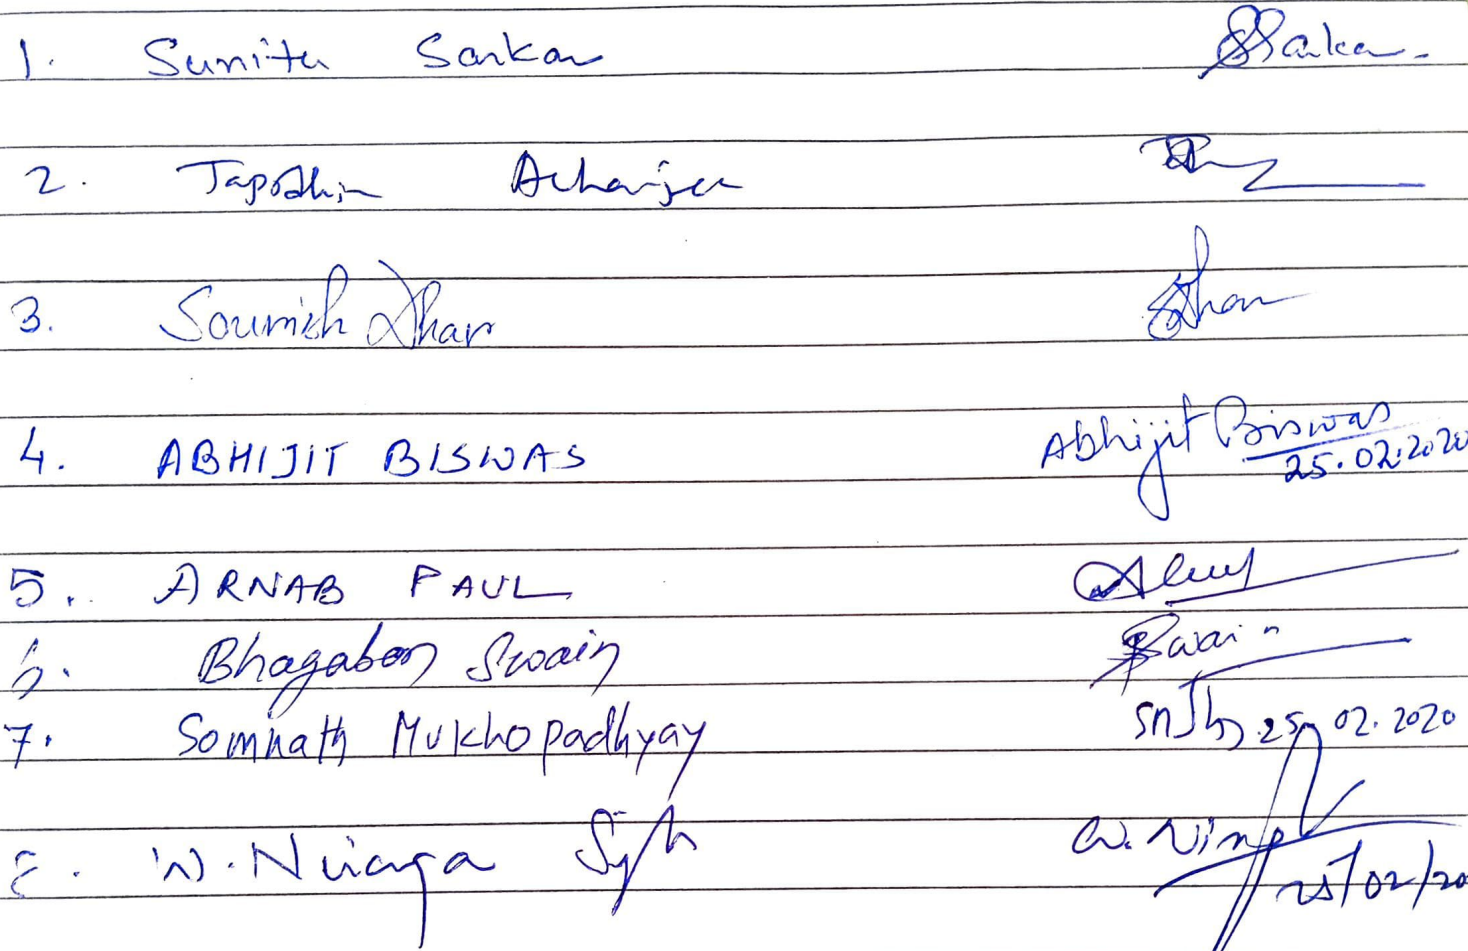 1. Sunita Sarkar SSarkar.
2. Tapodhir Acharjee
3. Soumish Dhar SDhar
4. ABHIJIT BISWAS Abhijit Biswas
25.02.2020
5. ARNAB PAUL APaul
6. Bhagaban Swain BSwain
7. Somnath Mukhopadhyay 25.02.2020
8. W. Singh W.
25/02/20